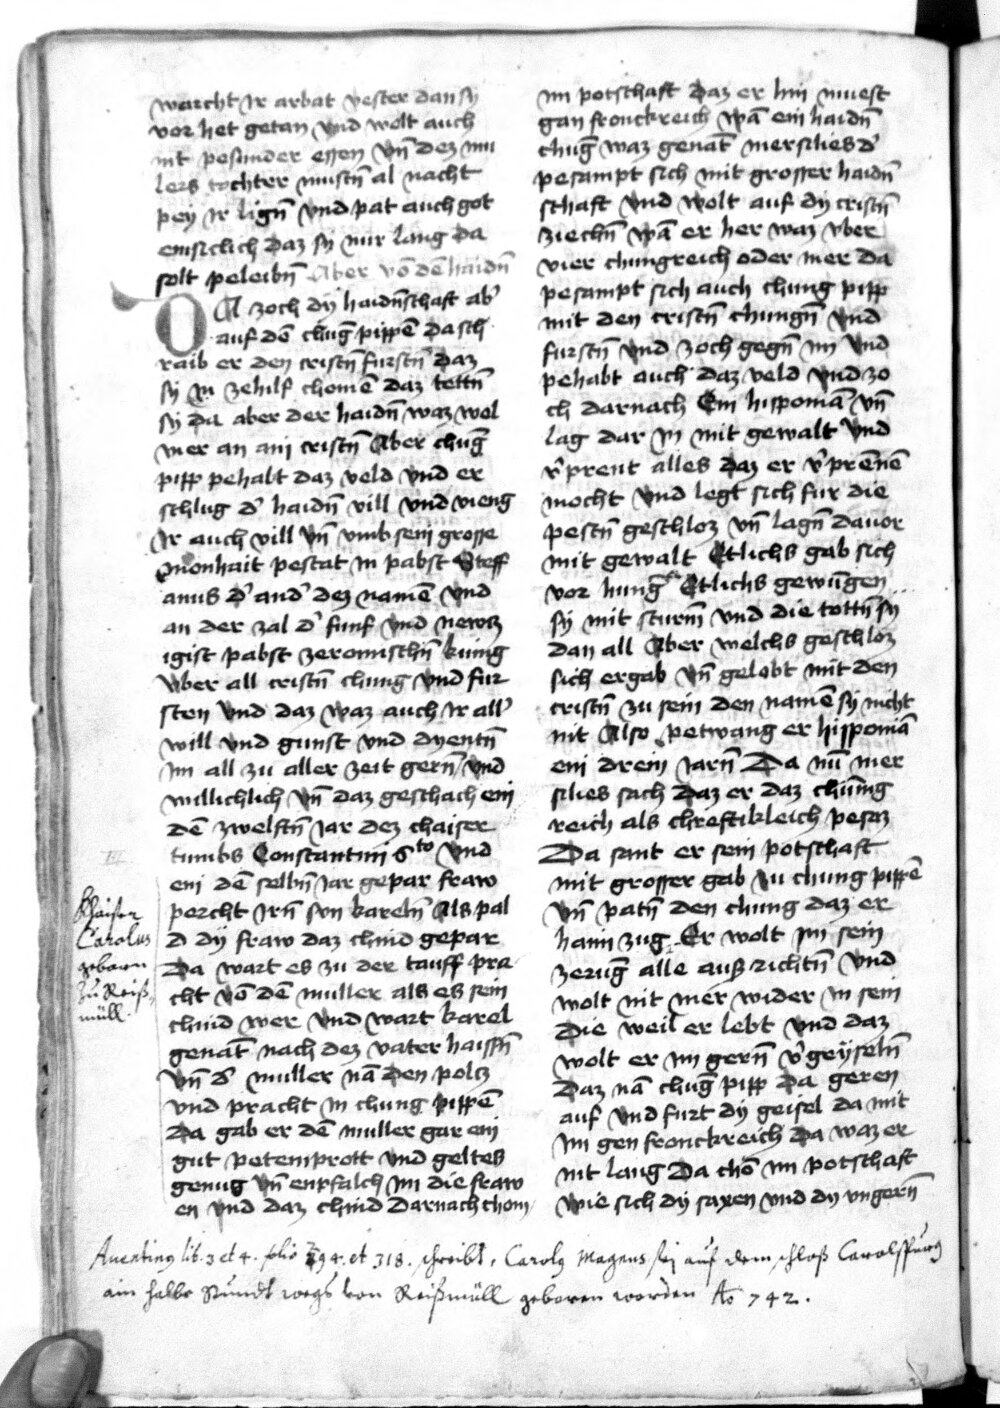 warcht Ir arbat vester dan sy
vor het getan vnd wolt auch
nit pesunder essen vn̄ dez mu
lers tochter mustn̄ al nacht
pey Ir lign̄ vnd pat auch got
emsiclich daz sy nur lang da
solt peleibn̄ Aber vō dē haidn̄
DA zoch dy haidn̄schaft ab'
auf dē chūg pippē da sch
raib er den cristn̄ furstn̄ daz
sy Im zehilf chomē daz tettn̄
sy da aber der haidn̄ waz wol
mer an ani cristn̄ Aber chūg
pipp pehalt daz veld vnd er
schlug d' haidn̄ vill vnd vieng
Ir auch vill vn̄ vmb sein grosse
monhait pestat In pabst Steff
anus d' and' dez namē vnd
an der zal d' funf vnd newcz
igist pabst ze romischn̄ kunig
vber all cristn̄ chung vnd fur
sten vnd daz waz auch Ir all'
will vnd gunst vnd dyentn̄
Im all zu aller zeit gern̄ vnd
willichlich vn̄ daz geschach ein
dē zwelftn̄ Jar dez chaiser
tumbs Constantini 6to vnd
ein dē selbn̄ Jar gepar fraw
percht Irn̄ sun kareln̄ Als pal
d dy fraw daz chind gepar
Da wart es zu der tauff pra
cht vō dē muller als es sein
chind wer vnd wart karel
genāt nach dez vater haissn̄
vn̄ d' muller nā den polcz
vnd pracht In chung pippē
Da gab er dē muller gar ein
gut petemprott vnd geltes
genug vn̄ enpfalch Im die fraw
en vnd daz chind Darnach chom
Im potschaft daz er hin muest
gan fronckreich wā ein haidn̄
chūg waz genāt mersilies d'
pesampt sich mit grosser haidn̄
schaft vnd wolt auf dy cristn̄
ziechn̄ wā er her waz vber
vier chungreich oder mer da
pesampt sich auch chung pipp
mit den cristn̄ chungn̄ vnd
furstn̄ vnd zoch gegn̄ Im vnd
pehabt auch daz veld vnd zo
ch darnach Ein hisponiā vn̄
lag dar In mit gewalt vnd
v'prent alles daz er v'prēnē
mocht vnd legt sich fur die
pestn̄ geschloz vn̄ lagn̄ dauor
mit gewalt Etlichs gab sich
vor hung' Etlichs gewūgen
sy mit sturm vnd die tottn̄ sy
dan all Aber welchs geschloz
sich ergab vn̄ gelobt mit den
cristn̄ zu sein den namē sy nicht
nit Also petwang er hisponiā
ein drein Jarn̄ Da nū mer
silies sach daz er daz chūnig
reich als chreftikleich pesaz
Da sant er sein potschaft
mit grosser gab zu chung pippē
vn̄ patn̄ den chung daz er
haim zug Er wolt Im sein
zerūg alle auß richtn̄ vnd
wolt nit mer wider In sein
die weil er lebt vnd daz
wolt er Im gern̄ v'geyseln̄
Daz nā chūg pipp da geren
auf vnd furt dy geisel da mit
Im gen fronckreich Da waz er
nit lang Da chō Im potschaft
wie sich dy saxen vnd dy vngern̄
Khaiser
Carolus
geborn
Zu Reiß
müll.
Auentinus lib. 3 et 4. folio 294. et 318. schreibt, Carolus Magnus sej auf dem schloß Carolspurg
ain halbe Stundt wegs von Reißmüll geboren worden Ao 742.